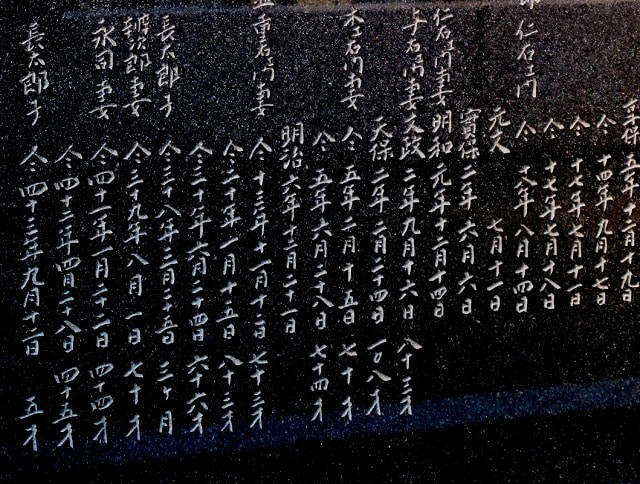 享保五年十二月十九日
仝 十四年九月十七日
仝 十七年七月十一日
仝 十七年七月十八日
仁右エ門 仝 十八年八月十四日
元文 七月十一日
寶保二年六月六日
仁右エ門妻 明和元年十二月十四日
与右エ門妻 文政二年九月十六日 八十三才
天保二年二月二十四日 一〇八才
木工右エ門妻 仝 五年二月十五日 七十才
仝 五年六月二十八日 七十四才
明治六年十二月二十一日
重右エ門妻 仝 十三年十一月十二日 七十三才
仝 二十年一月十五日 八十三才
仝 三十年六月二十四日 六十六才
長太郎子 仝 三十八年二月二十五日 三ヶ月
辨次郎妻 仝 三十九年八月一日 七十才
永司妻 仝 四十一年一月二十二日 四十四才
仝 四十二年四月二十八日 四十五才
長太郎子 仝 四十三年九月十二日 五才